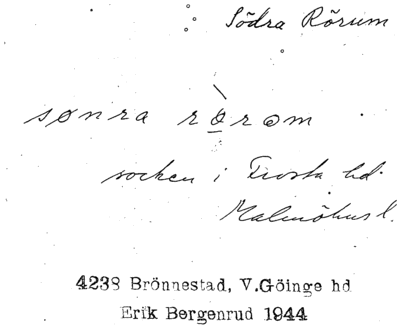 Södra Rörum
sønra rørom
socken i Frosta hd.
Malmöhus l.
4238 Brönnestad, V.Göinge hd
Erik Bergenrud 1944